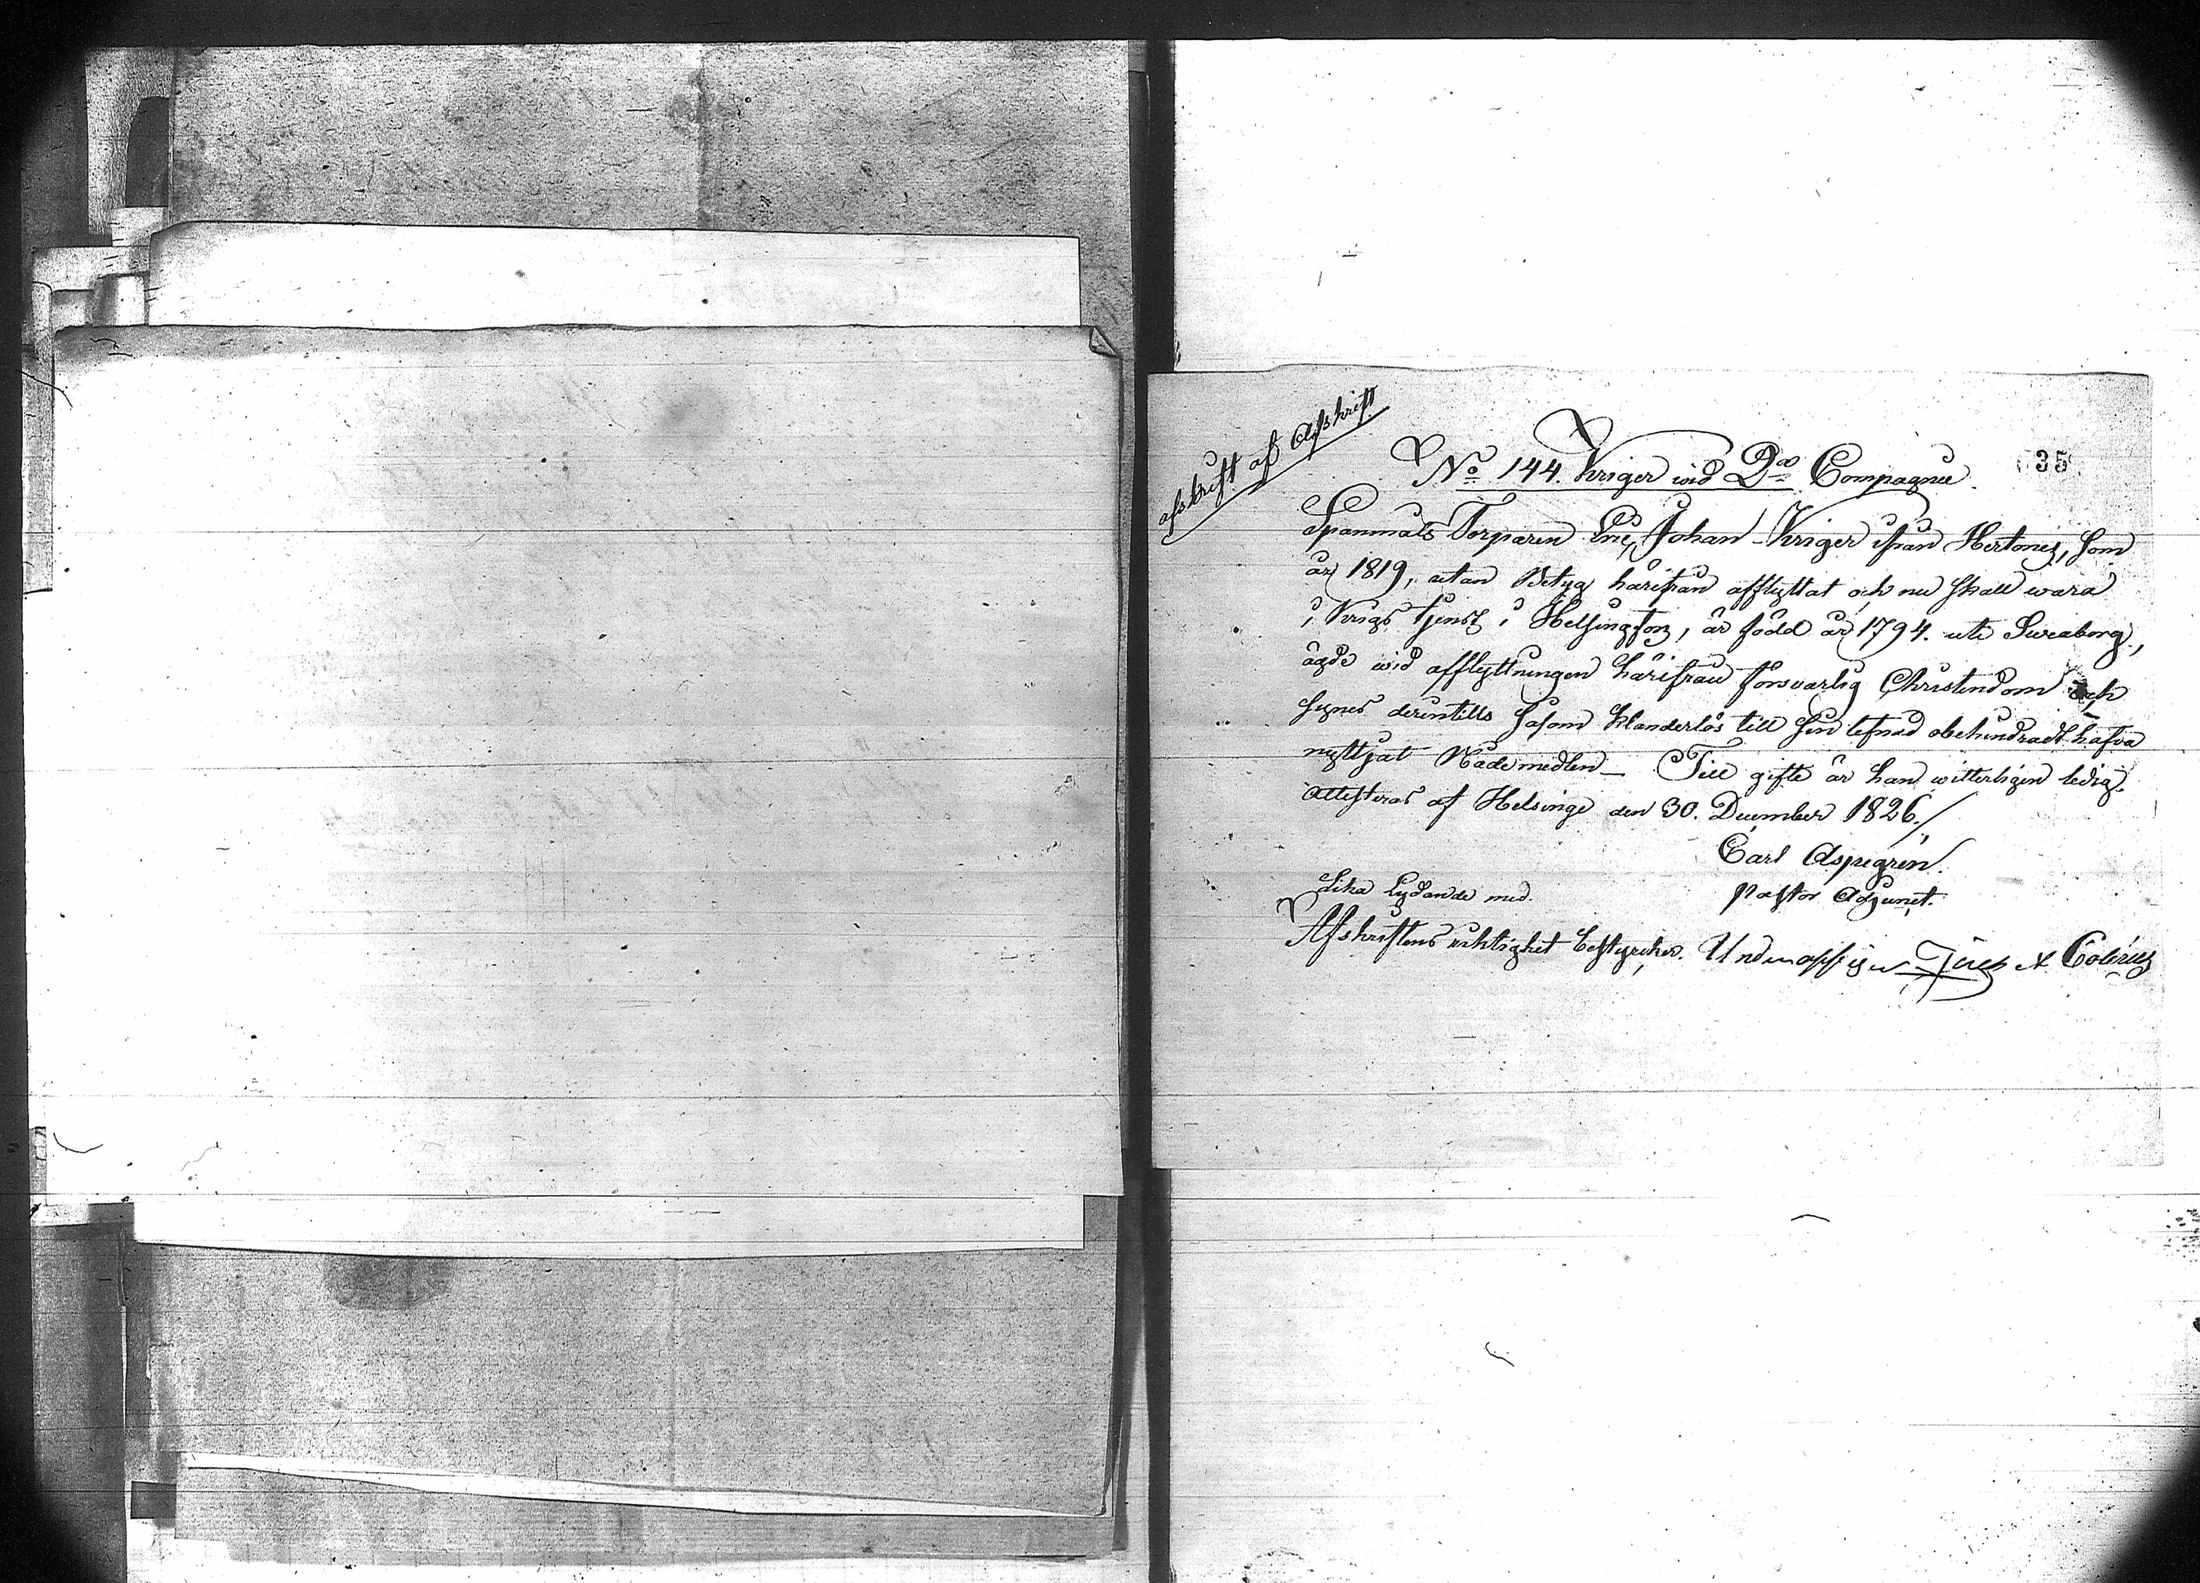 afskrift af Afskrift
No 144. Kriger wid 2da Compagnie.
35
Spanmåls Torparen Johan Kriger ifrån Hertonäs, som
år 1819, utan Betyg härifrån afflyttat och nu skall wara
i Krigs tjenst i Helsingfors, är född år 1794. uti Sweaborg,
ägde wid afflyttningen härifrån försvarlig Christendom och
synes deruntills såsom klanderlös till sin lefnad obehindradt hafva
nyttjat Nådemedlen – Till gifte är han witterligen ledig.
Attesteras af Helsinge den 30. December 1826./
Carl Aspegren.
Pastor Adjunct.
Lika Lydande med.
Afskriftens riktighet bestyrker.